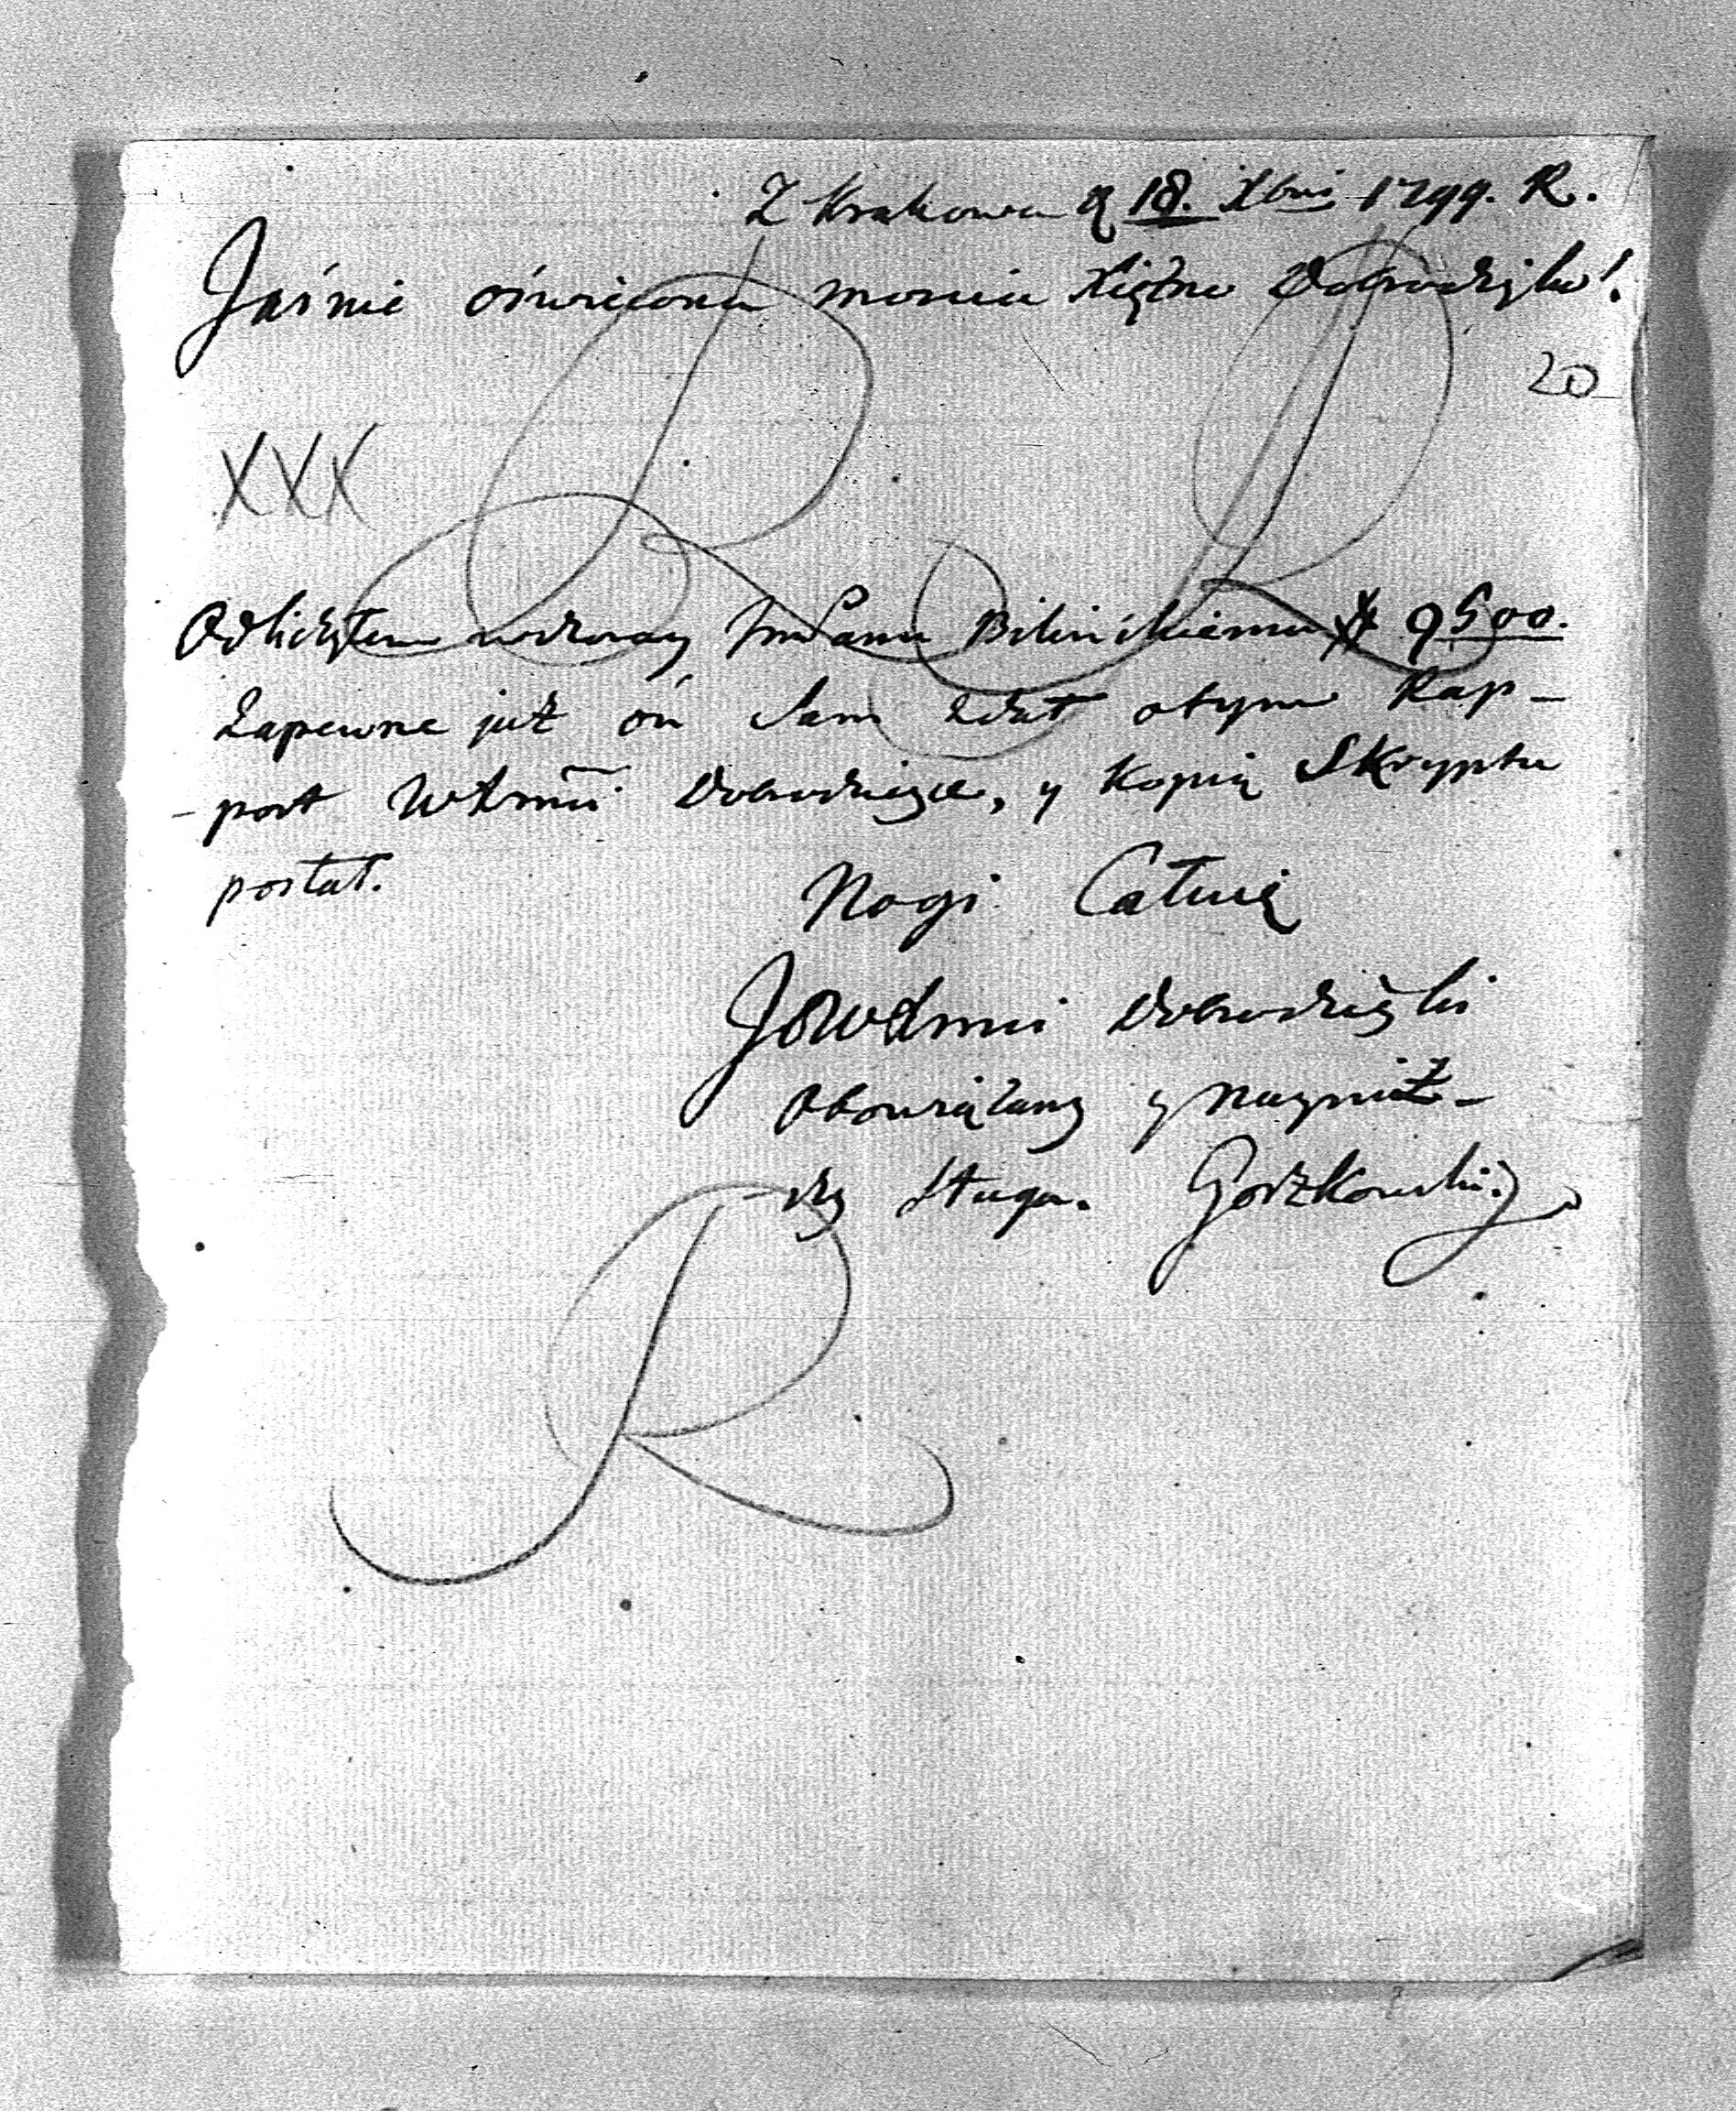 Z Krakowa d 18. Xbris 1799. R.
Jaśnie oświecona mościa Xiężno Dobrodzyko!
20
XXX
R R
Odliczyłem wczoray ImPanu Bilinskiemu # 9500.
Zapewne już on sam zdał otym Rap-
-port WXmci Dobrodziyce, y kopią Skryptu
posłał.
Nogi Całuię
JOWXmci Dobrodziyki
Obowiązany y Nayniż-
-szy sługa. Gorzkowski
R